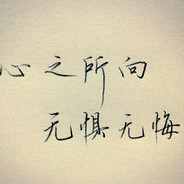 心之所向
无惧无悔